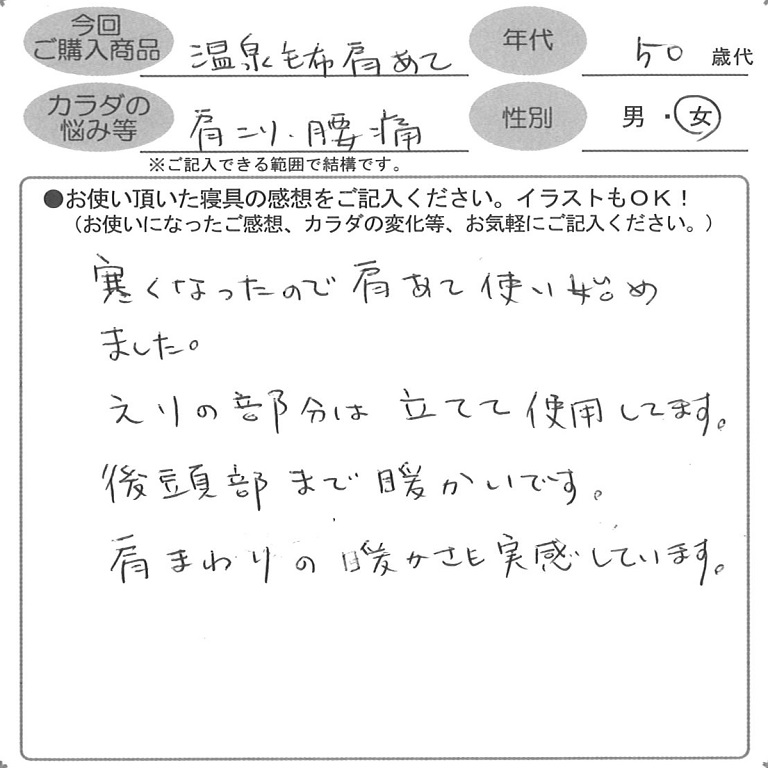 今回
ご購入商品 温泉毛布肩あて
年代 50 歳代
カラダの
悩み等 肩こり・腰痛
性別 男・女
※ご記入できる範囲で結構です。
●お使い頂いた寝具の感想をご記入ください。イラストもOK!
(お使いになったご感想、カラダの変化等、お気軽にご記入ください。)
寒くなったので肩あて使い始め
ました。
えりの部分は立てて使用してます。
後頭部まで暖かいです。
肩まわりの暖かさも実感しています。